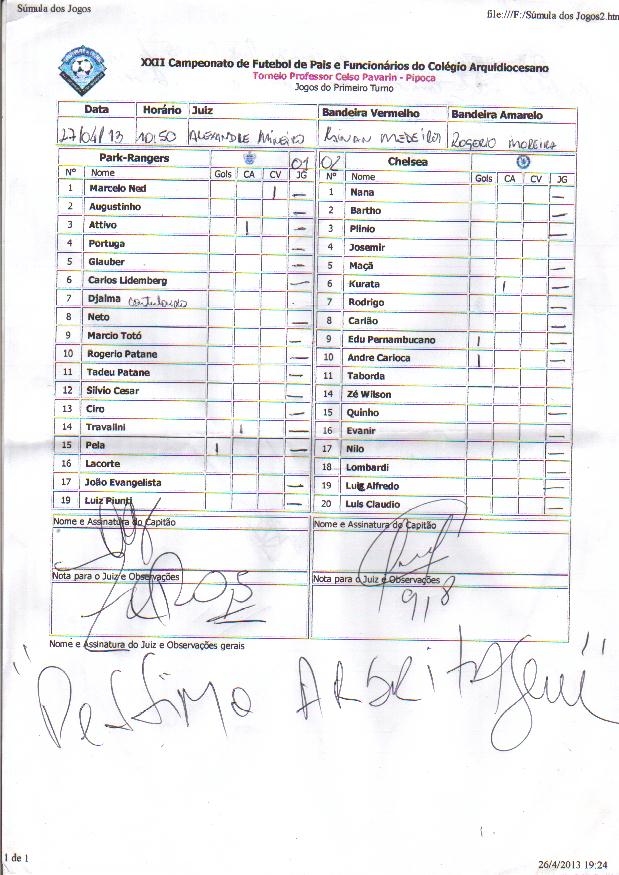 Súmula dos Jogos file:///F:/Súmula dos Jogos2.htm
XXII Campeonato de Futebol de Pais e Funcionários do Colégio Arquidiocesano
Torneio Professor Celso Pavarin - Pipoca
Jogos do Primeiro Turno
Data Horário Juiz Bandeira Vermelho Bandeira Amarelo
27/04/13 10:50 ALEXANDRE MINEIRO RAINAN MEDEIROS ROGERIO MOREIRA
Park-Rangers 01 02 Chelsea
Nº Nome Gols CA CV JG Nº Nome Gols CA CV JG
1 Marcelo Ned | — 1 Nana —
2 Augustinho — 2 Bartho —
3 Attivo | — 3 Plinio —
4 Portuga — 4 Josemir
5 Glauber — 5 Maçã —
6 Carlos Lidemberg — 6 Kurata | —
7 Djalma 7 Rodrigo —
8 Neto — 8 Carlão —
9 Marcio Totó — 9 Edu Pernambucano | —
10 Rogerio Patane — 10 Andre Carioca | —
11 Tadeu Patane — 11 Taborda
12 Silvio Cesar — 14 Zé Wilson —
13 Ciro — 15 Quinho —
14 Travalini | — 16 Evanir —
15 Pela | — 17 Nilo —
16 Lacorte 18 Lombardi —
17 João Evangelista — 19 Luis Alfredo —
19 Luiz Piunti — 20 Luis Claudio —
Nome e Assinatura do Capitão Nome e Assinatura do Capitão
Nota para o Juiz e Observações Nota para o Juiz e Observações
Nome e Assinatura do Juiz e Observações gerais
"Pessima ARBRITAGEM"
1 de 1 26/4/2013 19:24